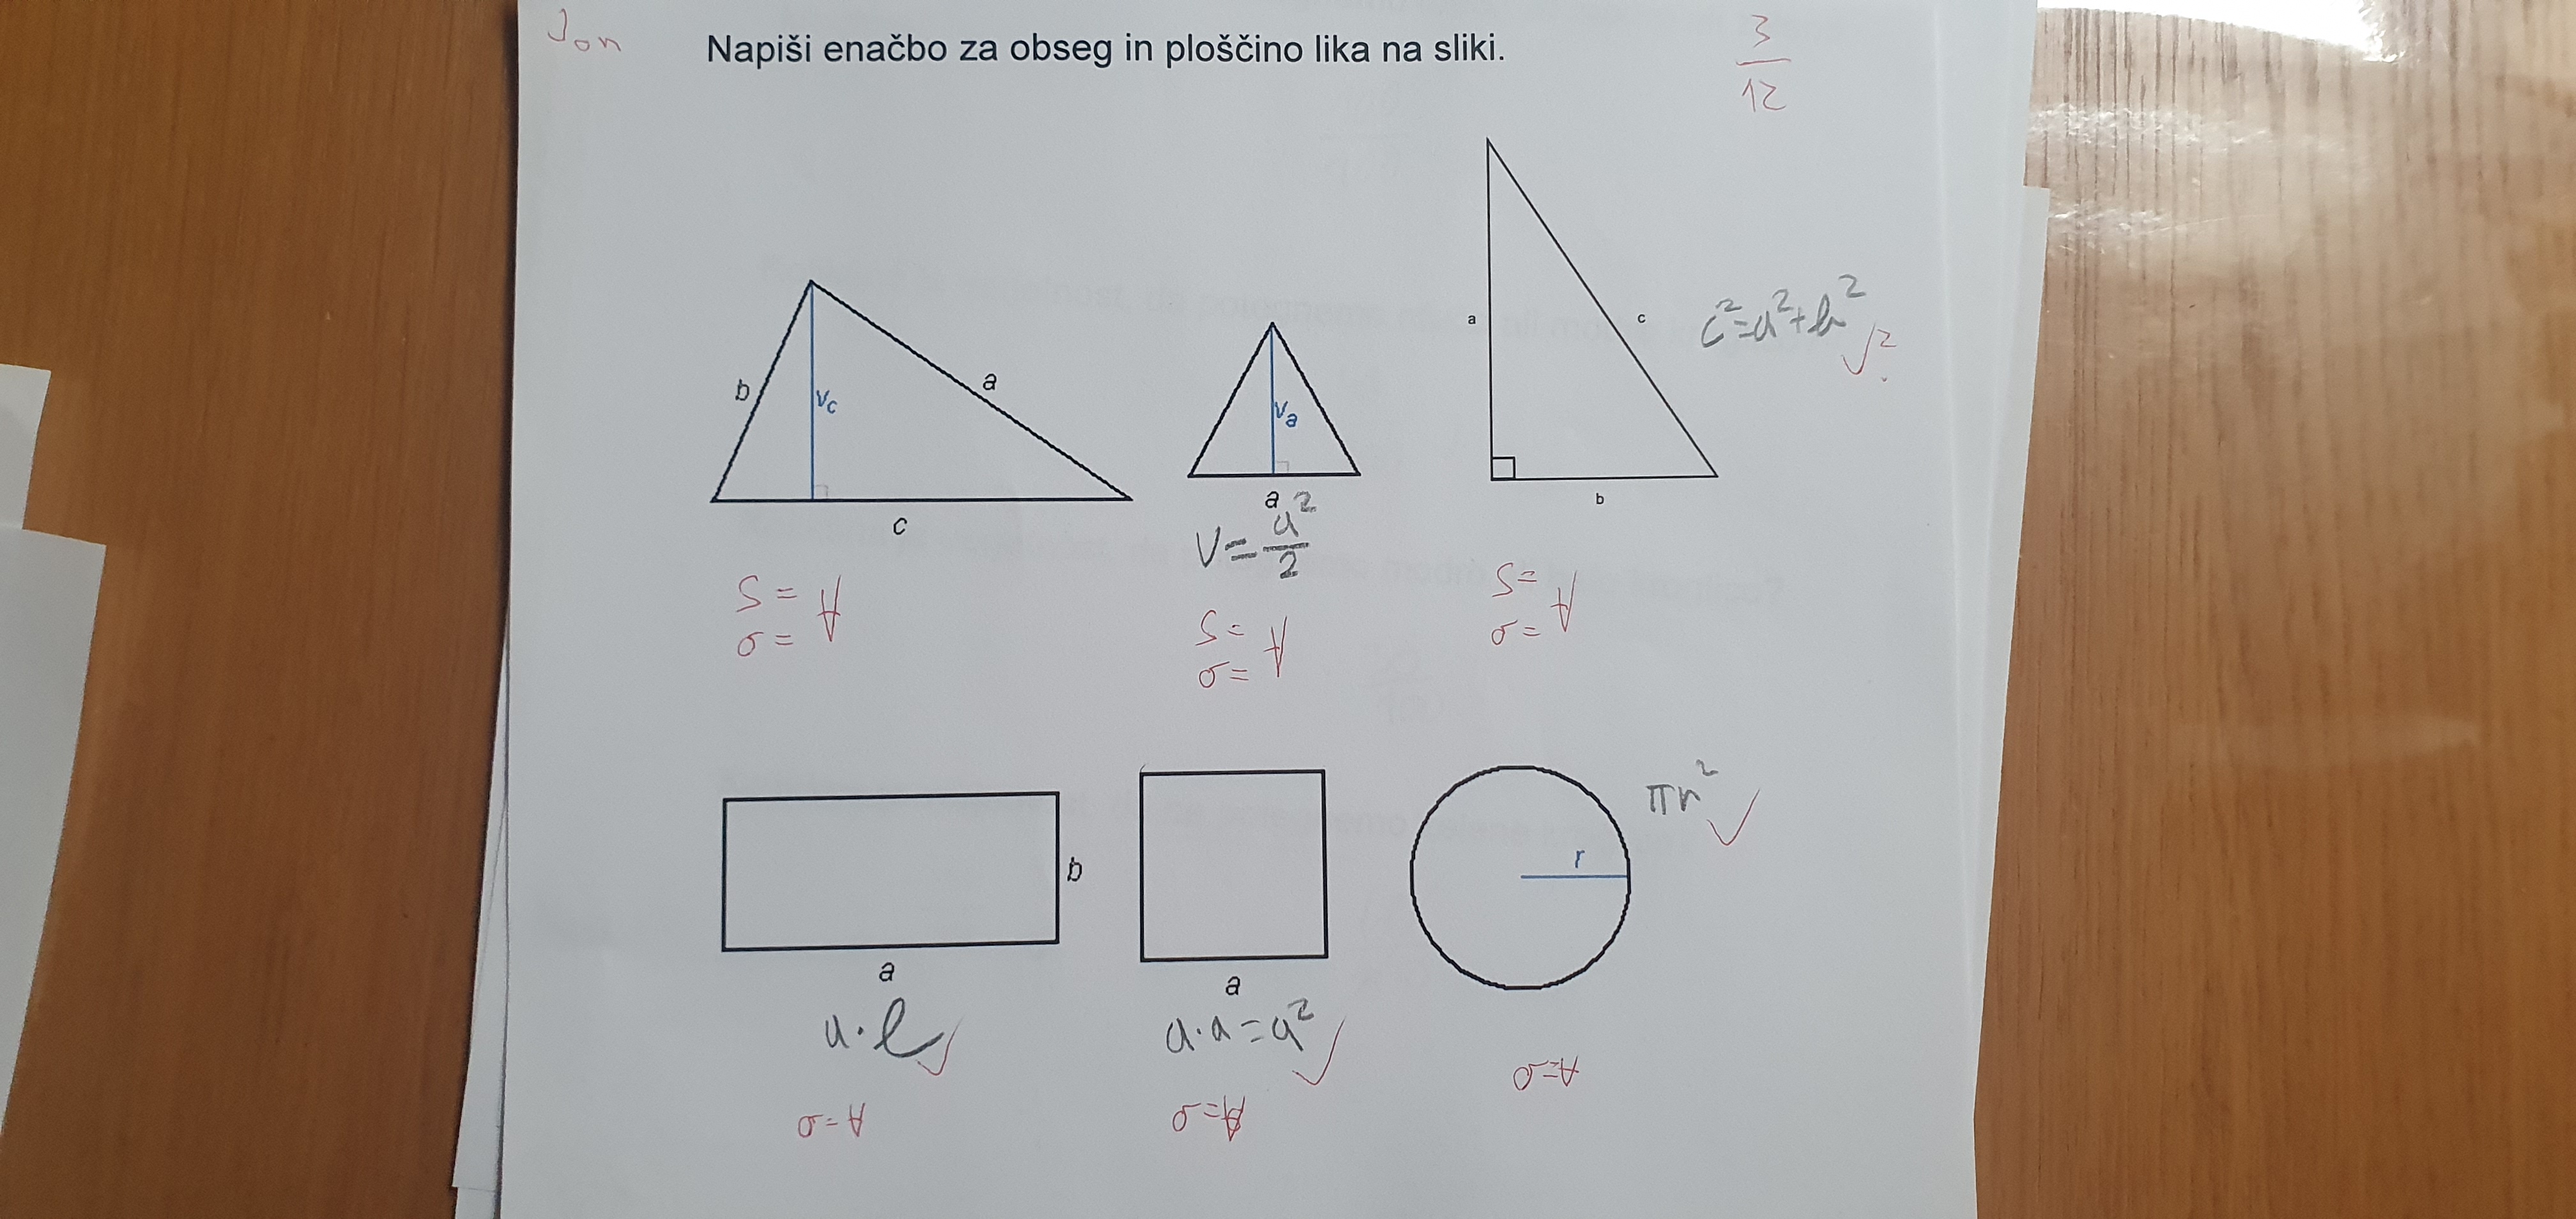 Jon
Napiši enačbo za obseg in ploščino lika na sliki.
3
12
b
vc
a
c
S =
o = A
va
a
v = a²/2
S =
o = A
a
c
b
c² = a² + b²
S =
o = A
b
a
a · b
o = A
a
a · a = a²
o = A
r
πr²
o = A